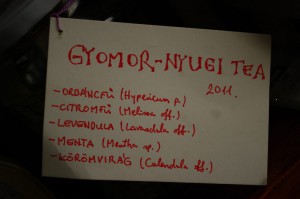 GYOMOR-NYUGI TEA
2011.
-ORBÁNCFŰ (Hypericum p.)
-CITROMFŰ (Melissa off.)
-LEVENDULA (Lavandula off.)
-MENTA (Mentha sp.)
-KÖRÖMVIRÁG (Calendula off.)